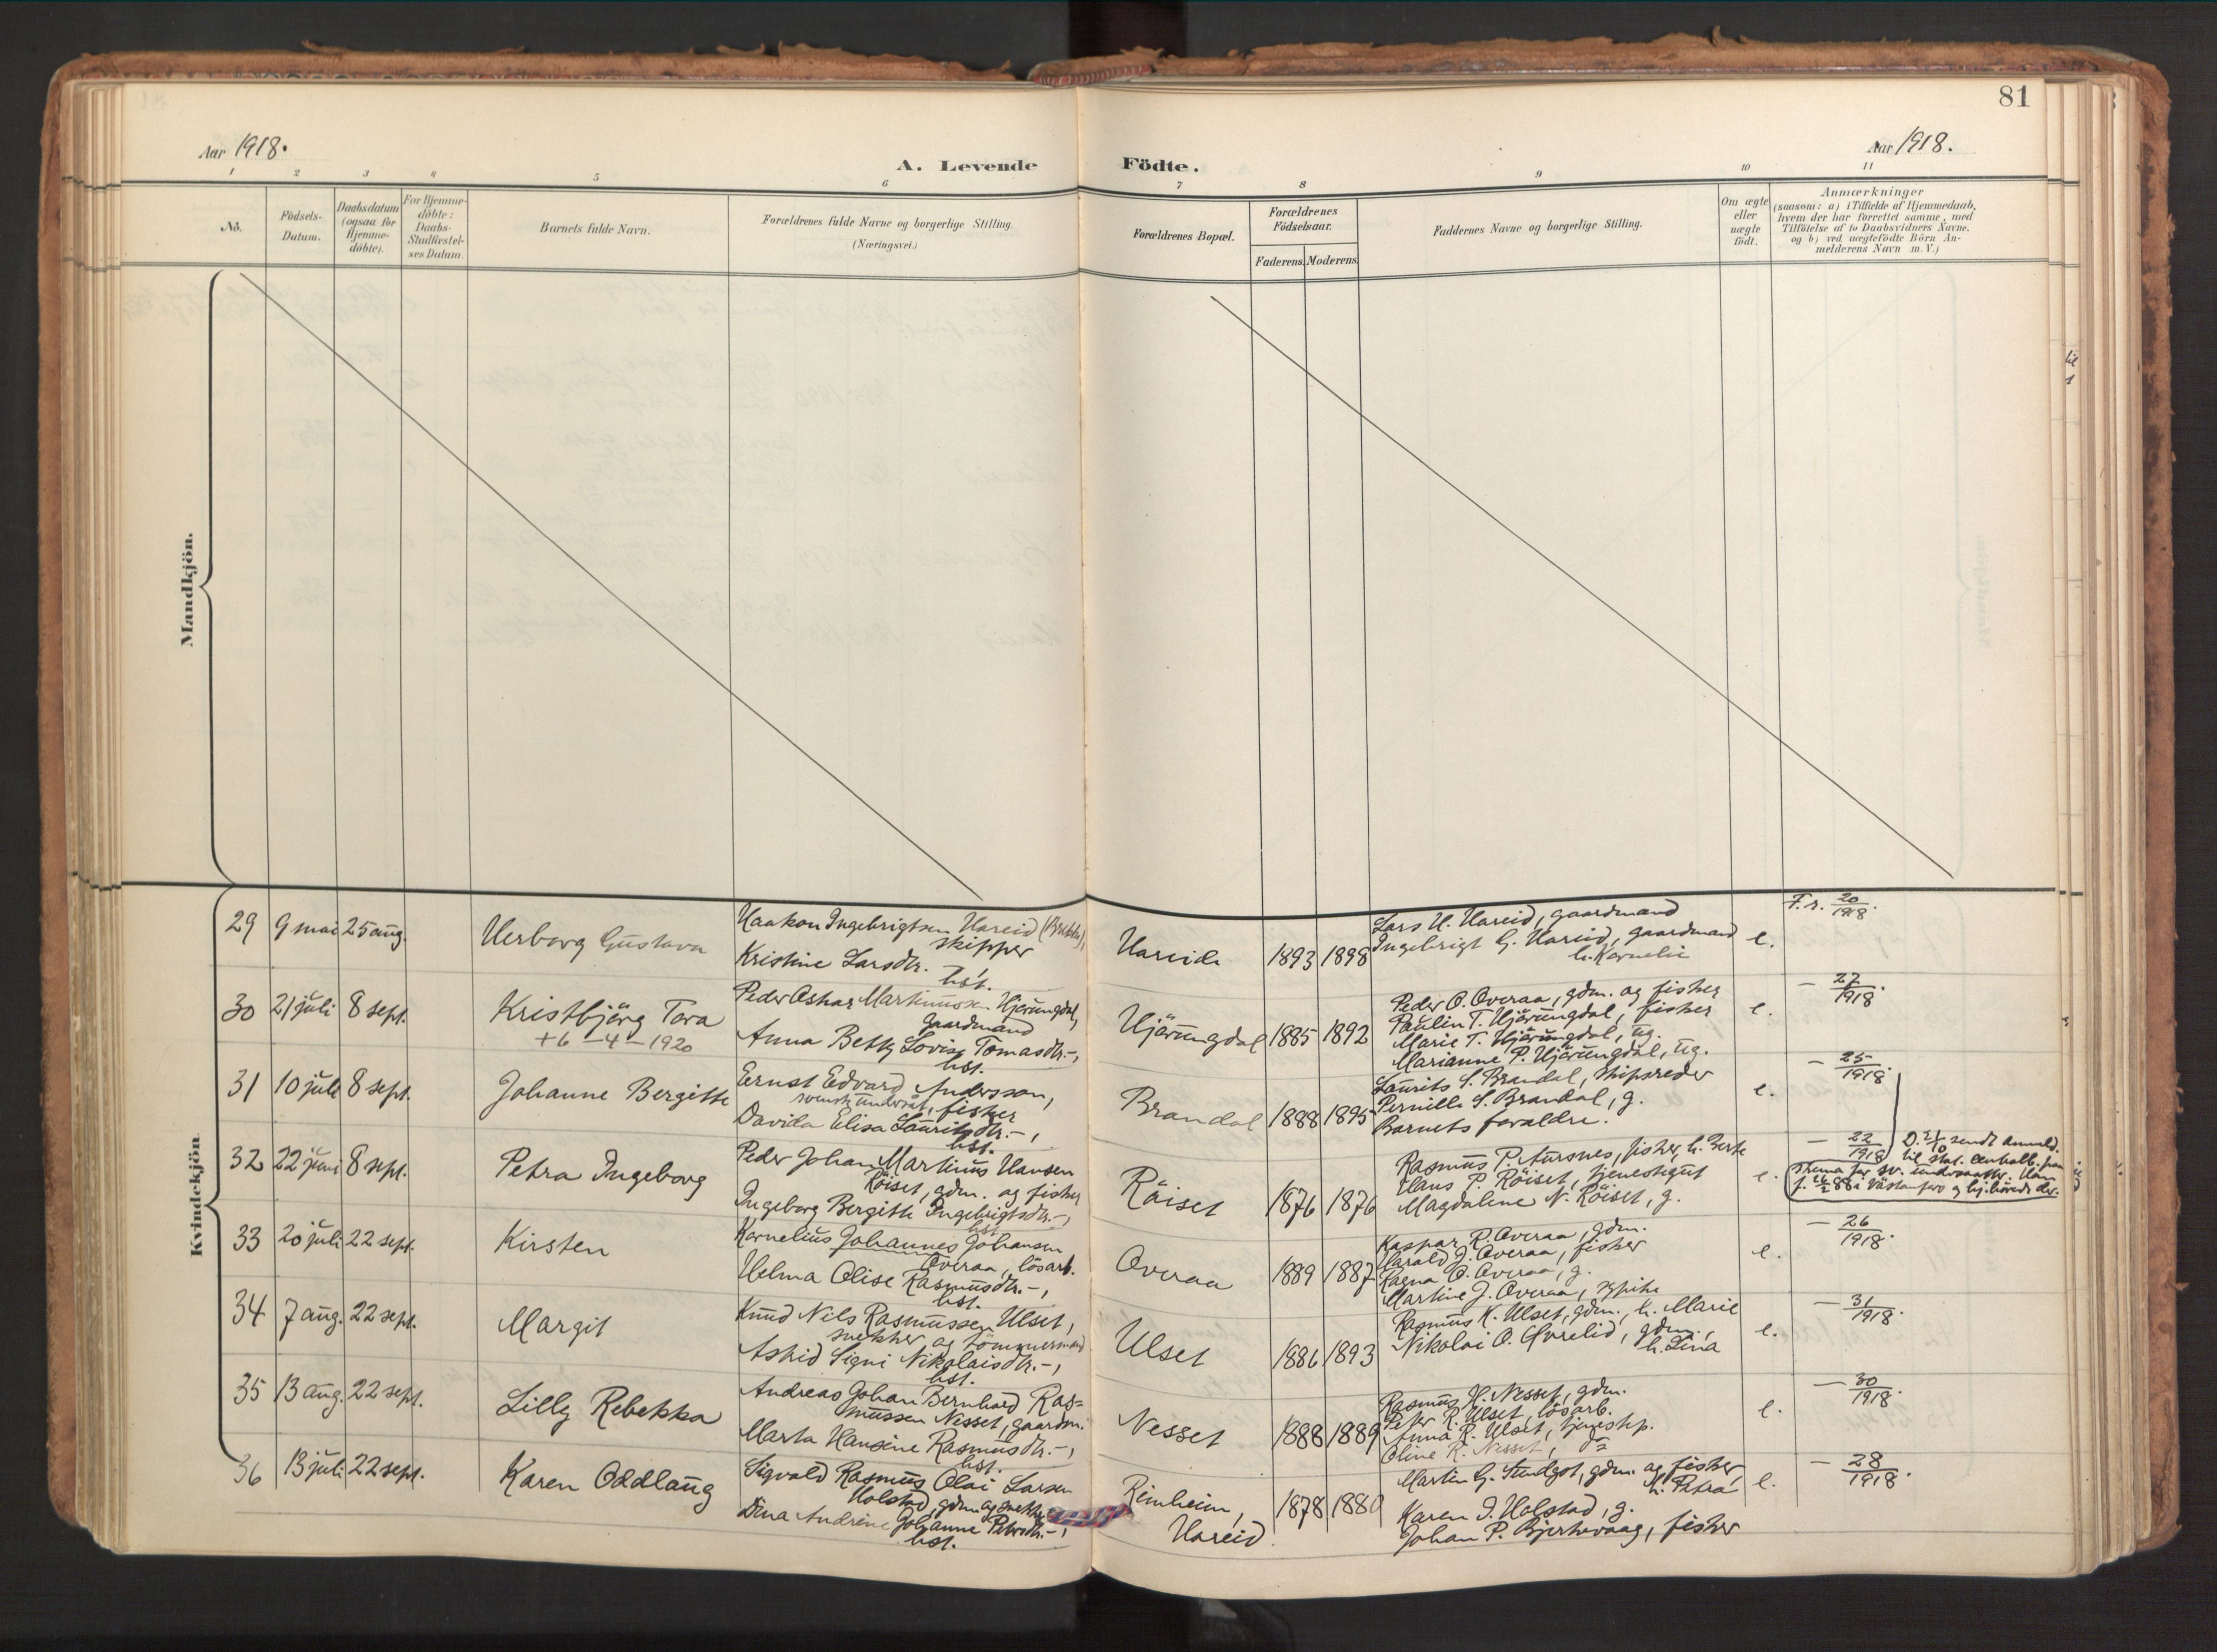 81
Aar 1918.
A. Levende Födte.
Aar 1918.
1 2 3 4 5 6 7 8 9 10 11
No.
Födsels-Datum.
Daabsdatum (ogsaa for Hjemme-döbte).
For Hjemme-döbte: Daabs-Stadfæstel-ses Datum.
Barnets fulde Navn.
Forældrenes fulde Navne og borgerlige Stilling.
(Næringsvei.)
Forældrenes Bopæl.
Forældrenes Födselsaar.
Faderens. Moderens.
Faddernes Navne og borgerlige Stilling.
Om ægte eller uægte födt.
Anmærkninger
(saasom: a) i Tilfælde af Hjemmedaab,
hvem der har forrettet samme, med
Tilföielse af to Daabsvidners Navne.
og b) ved uægtefödte Börn An-
melderens Navn m. V.)
Mandkjön.
Kvindekjön.
29 9 mai 25 aug. Herborg Gustava
Haakon Ingebrigtsen Hareid
skipper
Kristine Larsdtr. -
hst.
Hareid 1893 1898
Lars H. Hareid, gaardmand
Ingebrigt G. Hareid, gaardmand
h. Kornelie
e.
F. r. 20/1918.
30 21 juli 8 sept. Kristbjörg Tora
+ 6 - 4 - 1920
Peder Oskar Martinussen Hjörungdal,
gaardmand
Anna Betty Lovise Tomasdtr. -,
hst.
Hjörungdal 1885 1892
Peder O. Overaa, gdm. og fisker
Paulin T. Hjörungdal, fisker
Marie T. Hjörungdal, ug.
Marianne P. Hjörungdal, ug.
e.
- 27/1918.
31 10 juli 8 sept. Johanne Bergitte
Ernst Edvard Andersson,
svensk undersåt, fisker
Davida Elisa Lauritsdtr. -,
hst.
Brandal 1888 1895
Laurits S. Brandal, skipsreder
Pernille S. Brandal, g.
Barnets foraldre.
e.
- 25/1918.
32 22 juni 8 sept. Petra Ingeborg
Peder Johan Martinus Hansen
Röiset, gdm. og fisker
Ingeborg Bergitte Ingebrigtsdtr. -,
hst.
Röiset 1876 1876
Rasmus P. Aursnes, fisker, h. Berte
Hans P. Röiset, tjenestegut
Magdalene N. Röiset, g.
e.
- 22/1918
D. 21/10 sendt anmeld.
til stat. centralb. paa
skema for sv. undersaatter. Han
33 20 juli 22 sept. Kirsten
Kornelius Johannes Johansen
Overaa, lösarb.
Helma Olise Rasmusdtr. -,
hst.
Overaa 1889 1887
Kaspar R. Overaa, gdm.
Harald J. Overaa, fisker
Ragna O. Overaa, g.
Martine J. Overaa,
e.
- 26/1918.
34 7 aug. 22 sept. Margit
Knud Nils Rasmussen Ulset,
snekker og tömmermand
Astrid Signi Nikolaisdtr. -,
hst.
Ulset 1886 1893
Rasmus K. Ulset, gdm., h. Marie
Nikolai O. Överelid, gdm.,
h. Lina
e.
- 31/1918.
35 13 aug. 22 sept. Lilly Rebekka
Andreas Johan Bernhard Ras=
mussen Nesset, gaardm.
Marta Hansine Rasmusdtr. -,
hst.
Nesset 1888 1889
Rasmus H. Nesset, gdm.
Peter R. Ulset, lösarb.
Anna R. Ulset, tjenestep.
Oline R. Nesset, do
e.
- 30/1918.
36 13 juli 22 sept. Karen Oddlaug
Sigvald Rasmus Olai Larsen
Holstad, gdm. og snekker
Dina Andrine Johanne Petersdtr. -,
hst.
Reinheim,
Hareid
1878 1880
Martin G. Sundgot, gdm. og fisker,
h. Petra
Karen I. Holstad, g.
Johan P. Bjerkevaag, fisker
e.
- 28/1918.